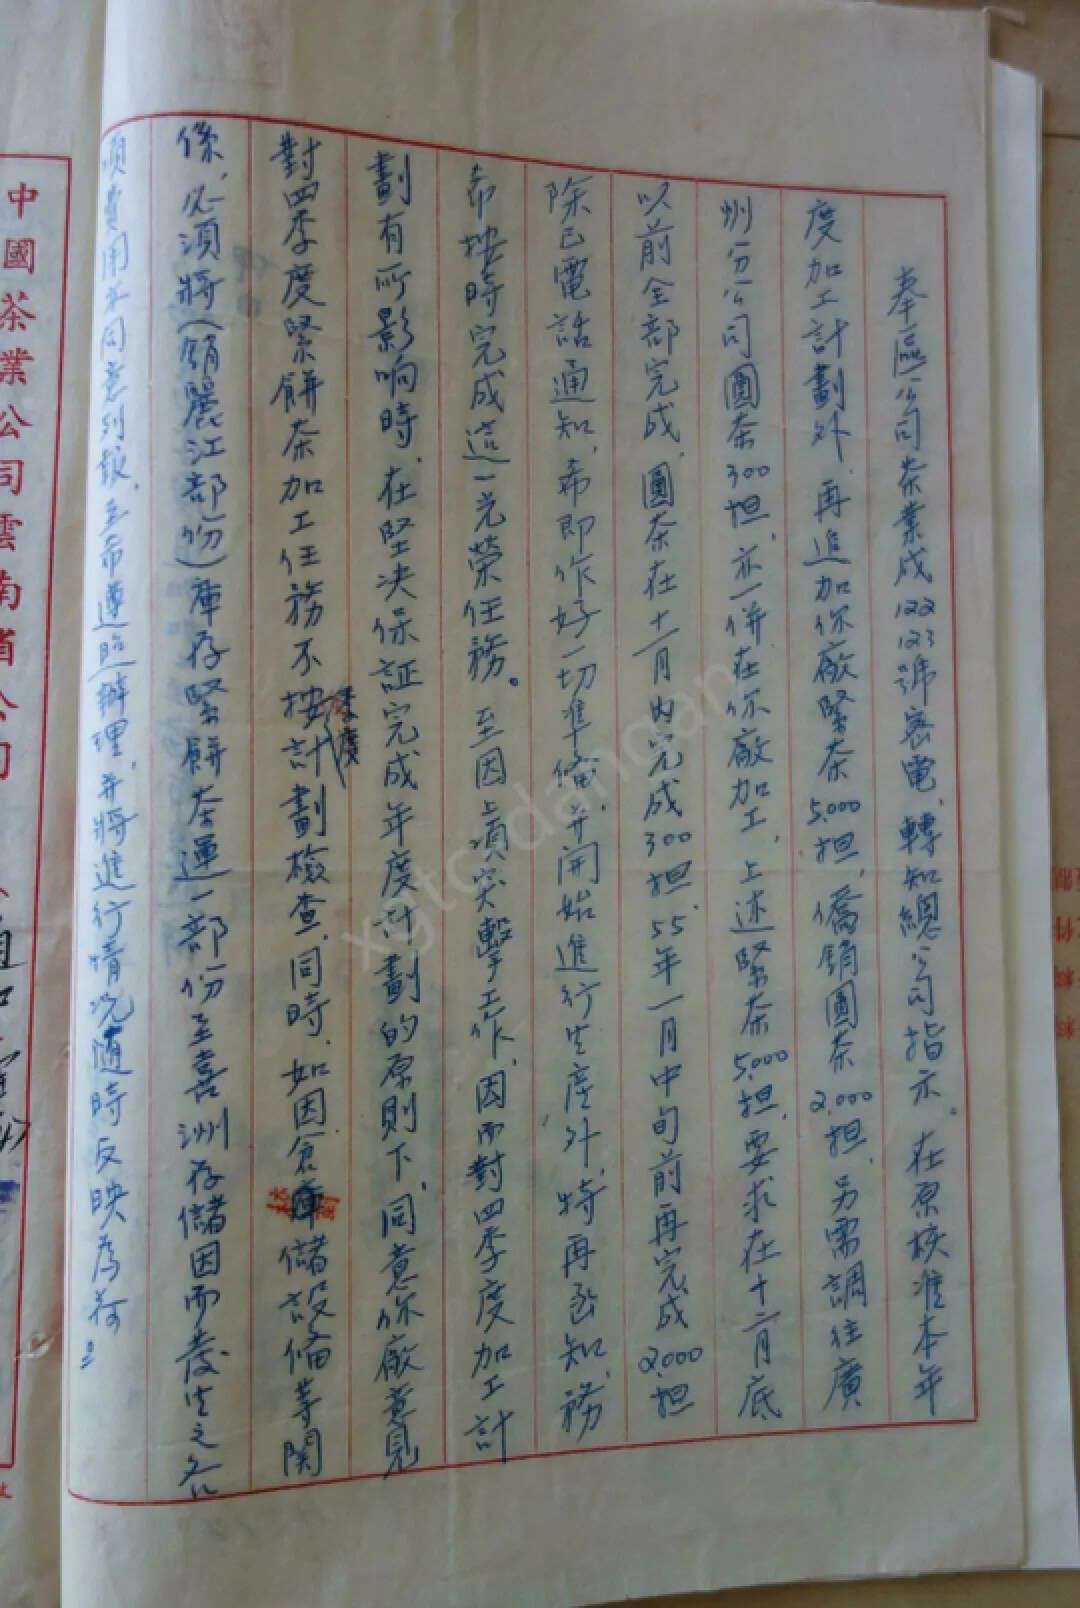 奉區公司茶業成122 123號密電，轉知總公司指示。在原核准本年
度加工計劃外，再追加你廠緊茶5,000担，僑銷圓茶2,000担，另需調往廣
州分公司圓茶300担，亦一併在你廠加工，上述緊茶5,000担，要求在十二月底
以前全部完成，圓茶在十一月内完成300担，55年一月中旬前再完成2,000担
除已電話通知，希即作好一切準俻，并開始進行生產外，特再函知，務
希按時完成這一光榮任務。至因上項突擊工作，因而對四季度加工計
劃有所影响時，在堅决保証完成年度計劃的原則下，同意你廠意見
對四季度緊餅茶加工任務不按季度計劃檢查，同時，如因倉庫儲設俻等関
係，必須將（銷麗江部份）庫存緊餅茶運一部份至喜洲存儲因而發生之各
項費用亦同意列報，並希遵照辦理，并將進行情况隨時反映為荷。
中國茶業公司雲南省公司
xgtcdangan